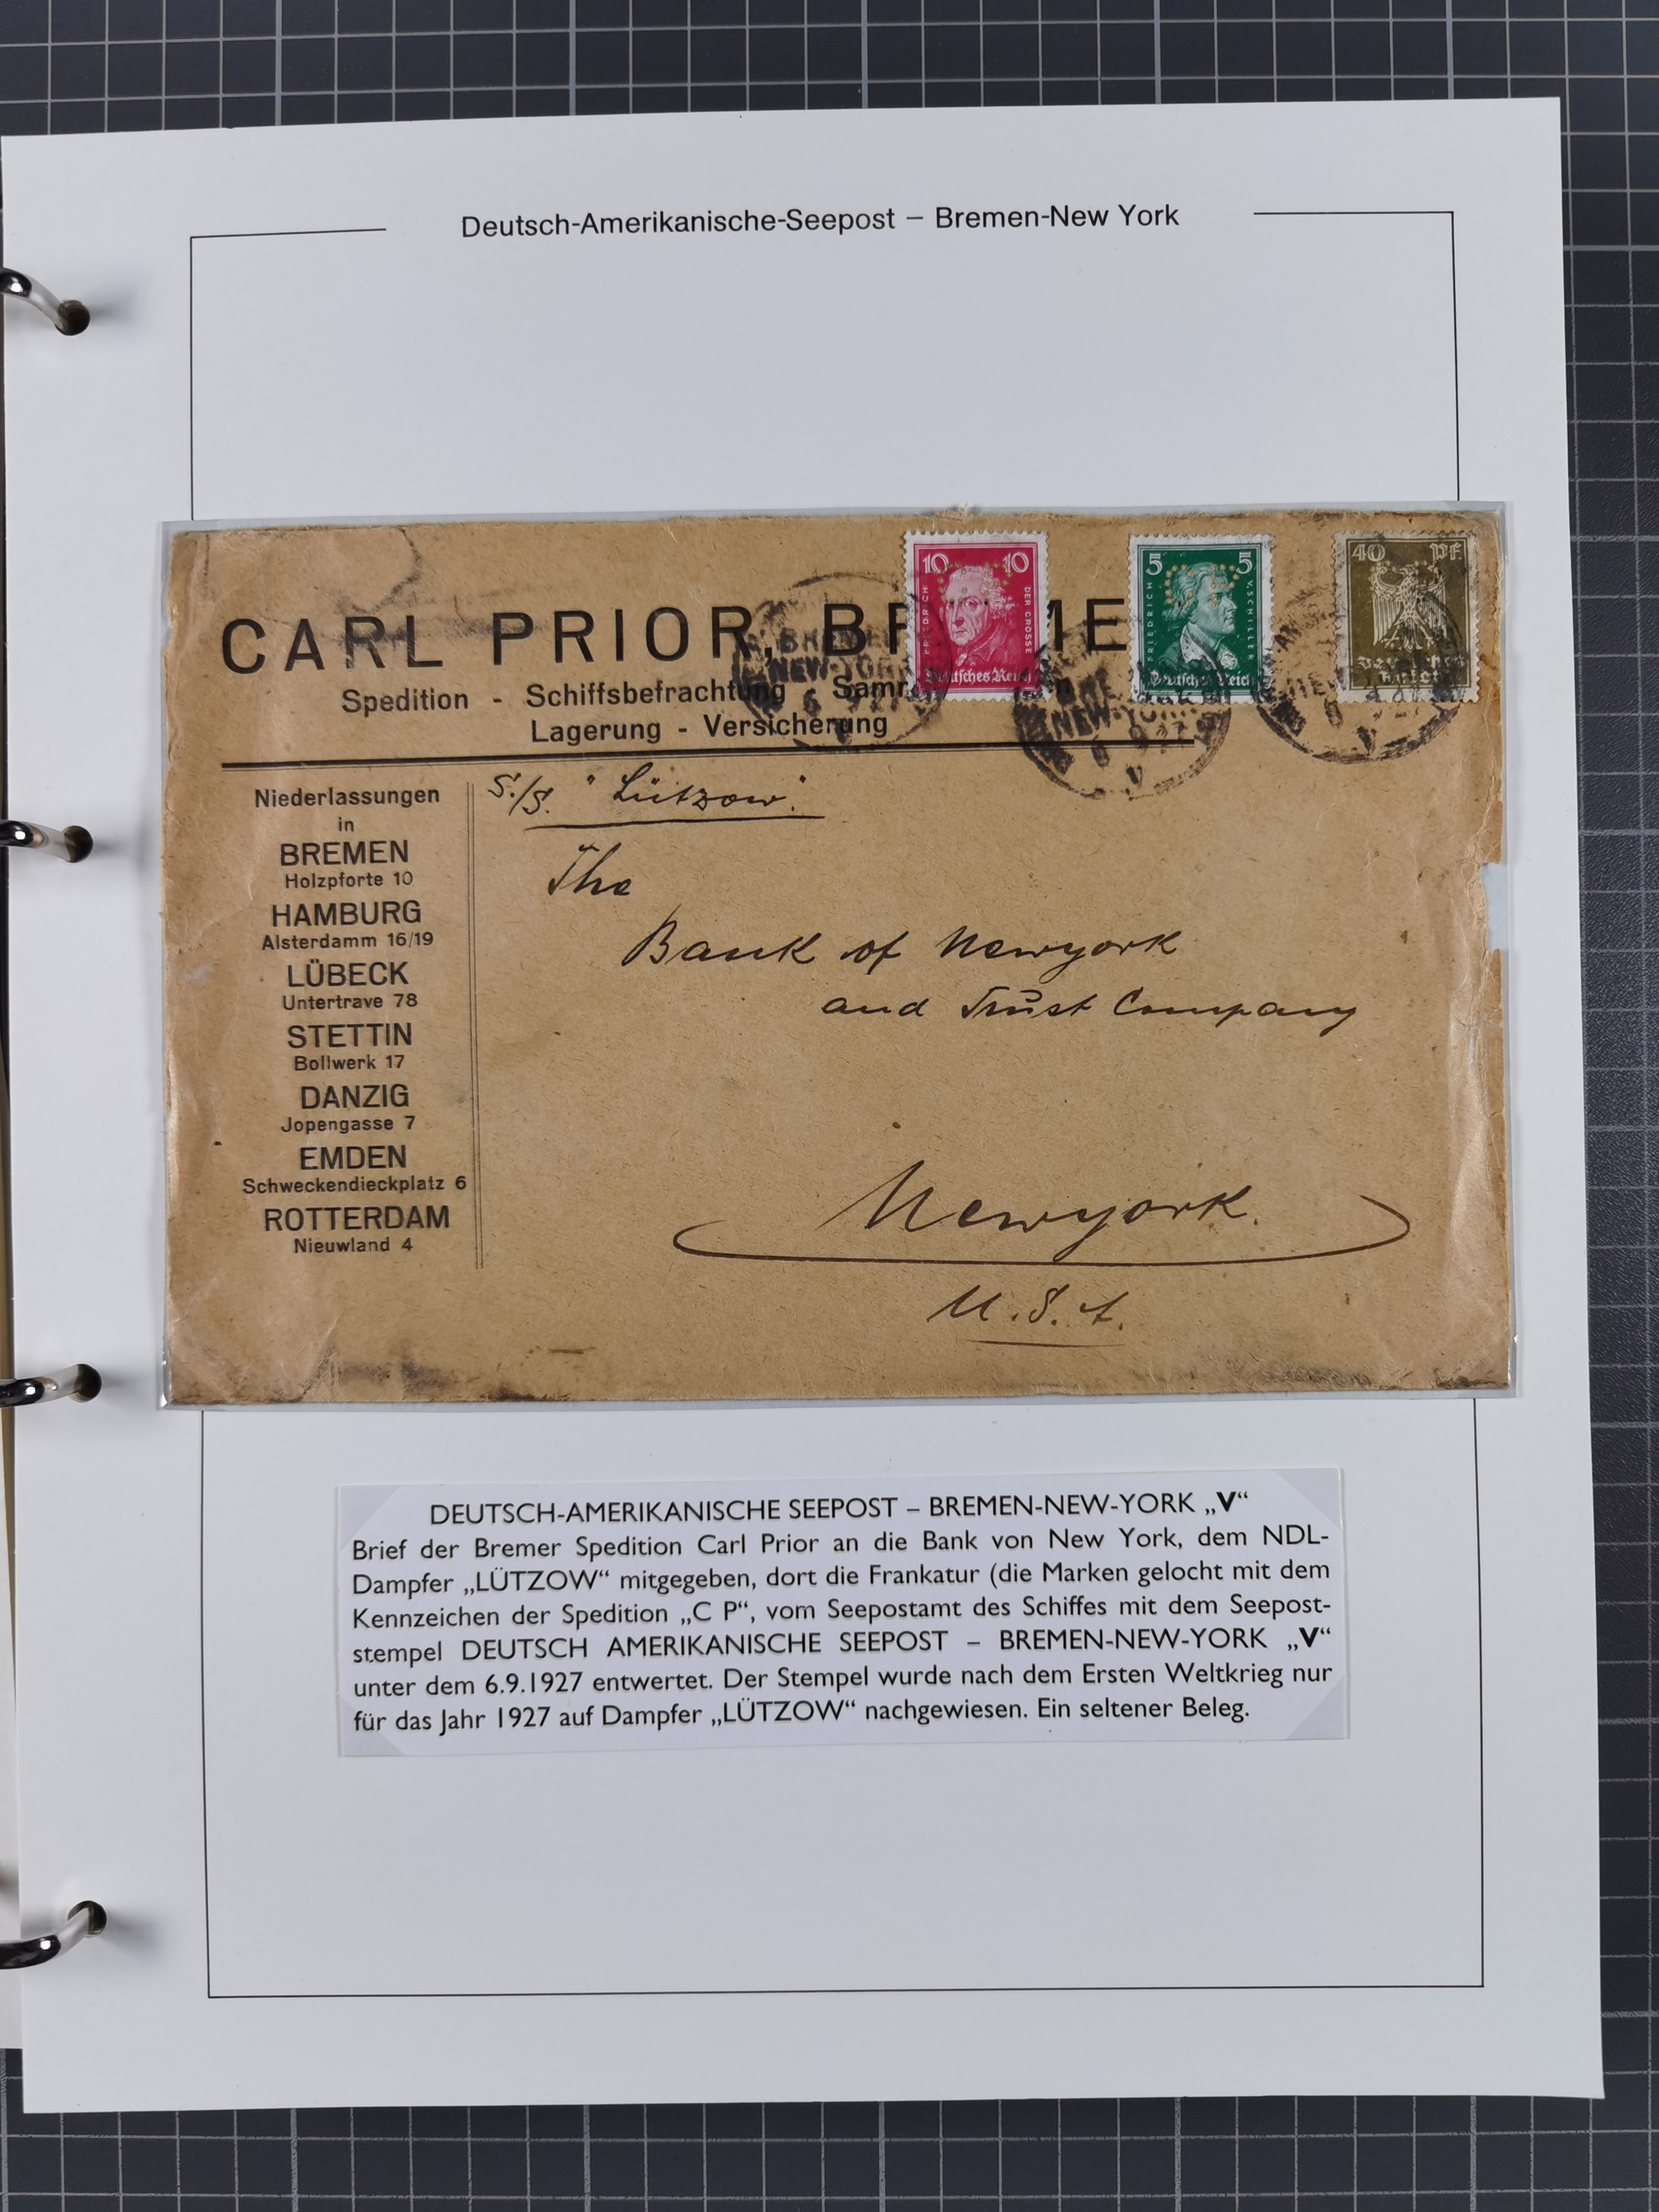 Deutsch-Amerikanische-Seepost – Bremen-New York
10 10
FRIEDRICH DER GROSSE
Deutsches Reich
5 5
FRIEDRICH V. SCHILLER
Deutsches Reich
40 Pf.
Deutsches
Reich
CARL PRIOR, BREME
Spedition - Schiffsbefrachtung - Samm
Lagerung - Versicherung
BREMEN
NEW-YORK
6 9 27
NEW-YORK
6 9 27
V
V
Niederlassungen
in
BREMEN
Holzpforte 10
HAMBURG
Alsterdamm 16/19
LÜBECK
Untertrave 78
STETTIN
Bollwerk 17
DANZIG
Jopengasse 7
EMDEN
Schweckendieckplatz 6
ROTTERDAM
Nieuwland 4
S./S. "Lützow".
The
Bank of Newyork
and Trust Company
Newyork.
U.S.A.
DEUTSCH-AMERIKANISCHE SEEPOST – BREMEN-NEW-YORK „V“
Brief der Bremer Spedition Carl Prior an die Bank von New York, dem NDL-
Dampfer „LÜTZOW“ mitgegeben, dort die Frankatur (die Marken gelocht mit dem
Kennzeichen der Spedition „C P“, vom Seepostamt des Schiffes mit dem Seepost-
stempel DEUTSCH AMERIKANISCHE SEEPOST – BREMEN-NEW-YORK „V“
unter dem 6.9.1927 entwertet. Der Stempel wurde nach dem Ersten Weltkrieg nur
für das Jahr 1927 auf Dampfer „LÜTZOW“ nachgewiesen. Ein seltener Beleg.